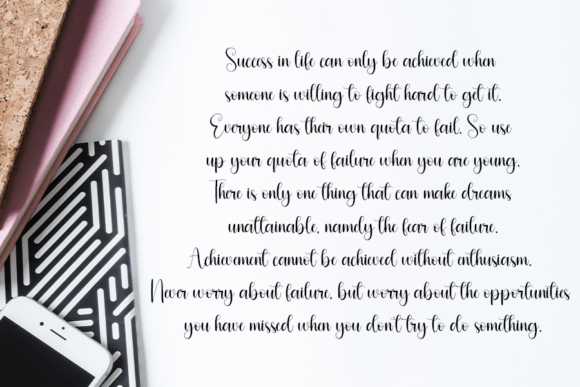 Success in life can only be achieved when
someone is willing to fight hard to get it.
Everyone has their own quota to fail. So use
up your quota of failure when you are young.
There is only one thing that can make dreams
unattainable, namely the fear of failure.
Achievement cannot be achieved without enthusiasm.
Never worry about failure, but worry about the opportunities
you have missed when you don't try to do something.